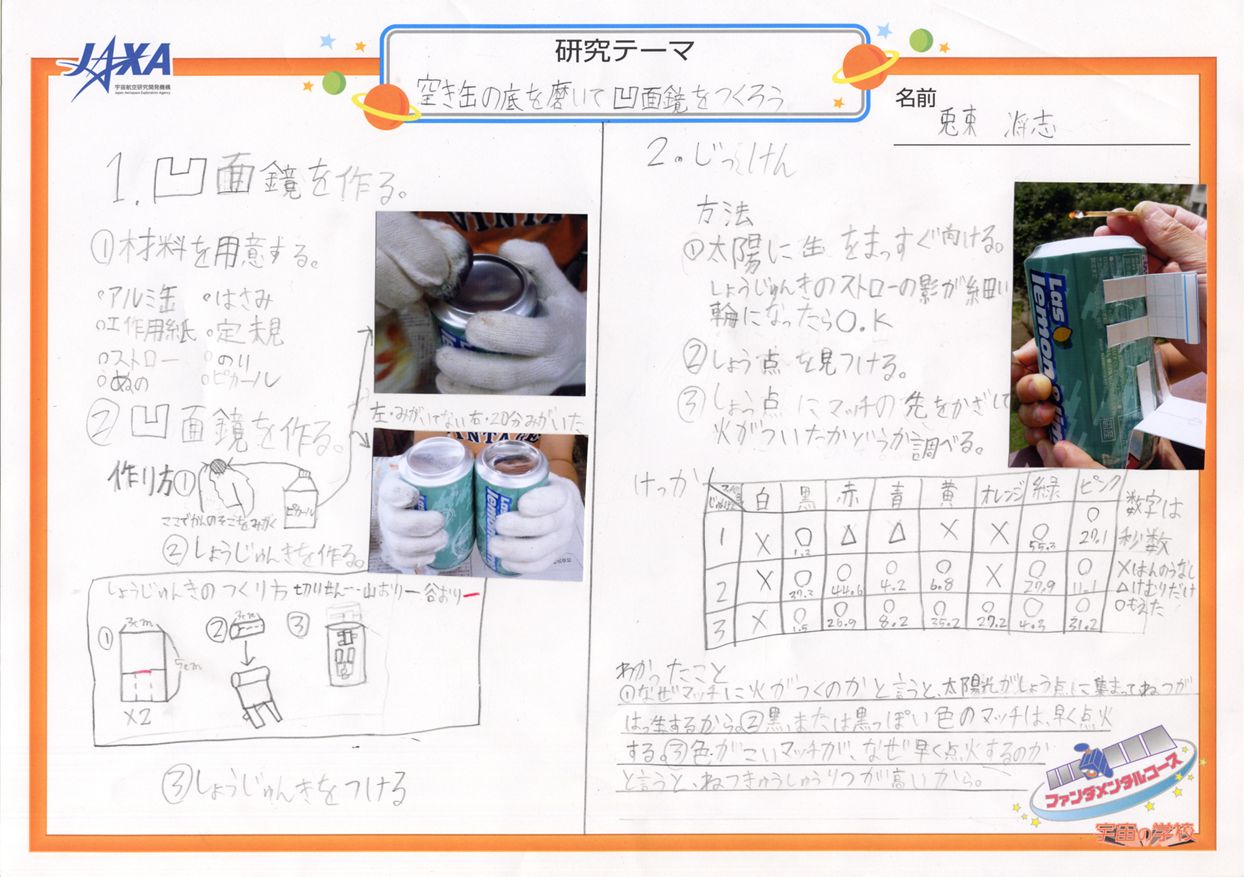 JAXA
宇宙航空研究開発機構
Japan Aerospace Exploration Agency
研究テーマ
空き缶の底を磨いて凹面鏡をつくろう
名前
兎東 将志
1.凹面鏡を作る。
①材料を用意する。
○アルミ缶 ○はさみ
○工作用紙 ○定規
○ストロー ○のり
○ぬの ○ピカール
②凹面鏡を作る。
左・みがいてない右・20分みがいた
作り方①
ピカール
ここでかんのそこをみがく
②しょうじゅんきを作る。
しょうじゅんきのつくり方 切りせん--- 山おりー 谷おりー
① 3cm ② 3cm ③
5cm
×2
③しょうじゅんきをつける
2。じっけん
方法
①太陽に缶をまっすぐ向ける。
しょうじゅんきのストローの影が細い
輪になったらO.K
②しょう点を見つける。
③しょう点にマッチの先をかざして
火がついたかどうか調べる。
Las
lemon
けっか
白 黒 赤 青 黄 オレンジ 緑 ピンク
1 × ○1.2 △ △ × × ○55.3 ○27.1
2 × ○37.2 ○44.6 ○4.2 ○6.8 × ○27.9 ○11.1
3 × ○1.5 ○26.9 ○8.2 ○35.2 ○27.2 ○4.3 ○31.2
数字は
秒数
×はんのうなし
△けむりだけ
○もえた
わかったこと
①なぜマッチに火がつくのかと言うと、太陽光がしょう点に集まってねつが
はっ生するから。②黒、または黒っぽい色のマッチは、早く点火
する。③色がこいマッチが、なぜ早く点火するのか
と言うと、ねつきゅうしゅうりつが高いから。
ファンダメンタルコース
宇宙の学校